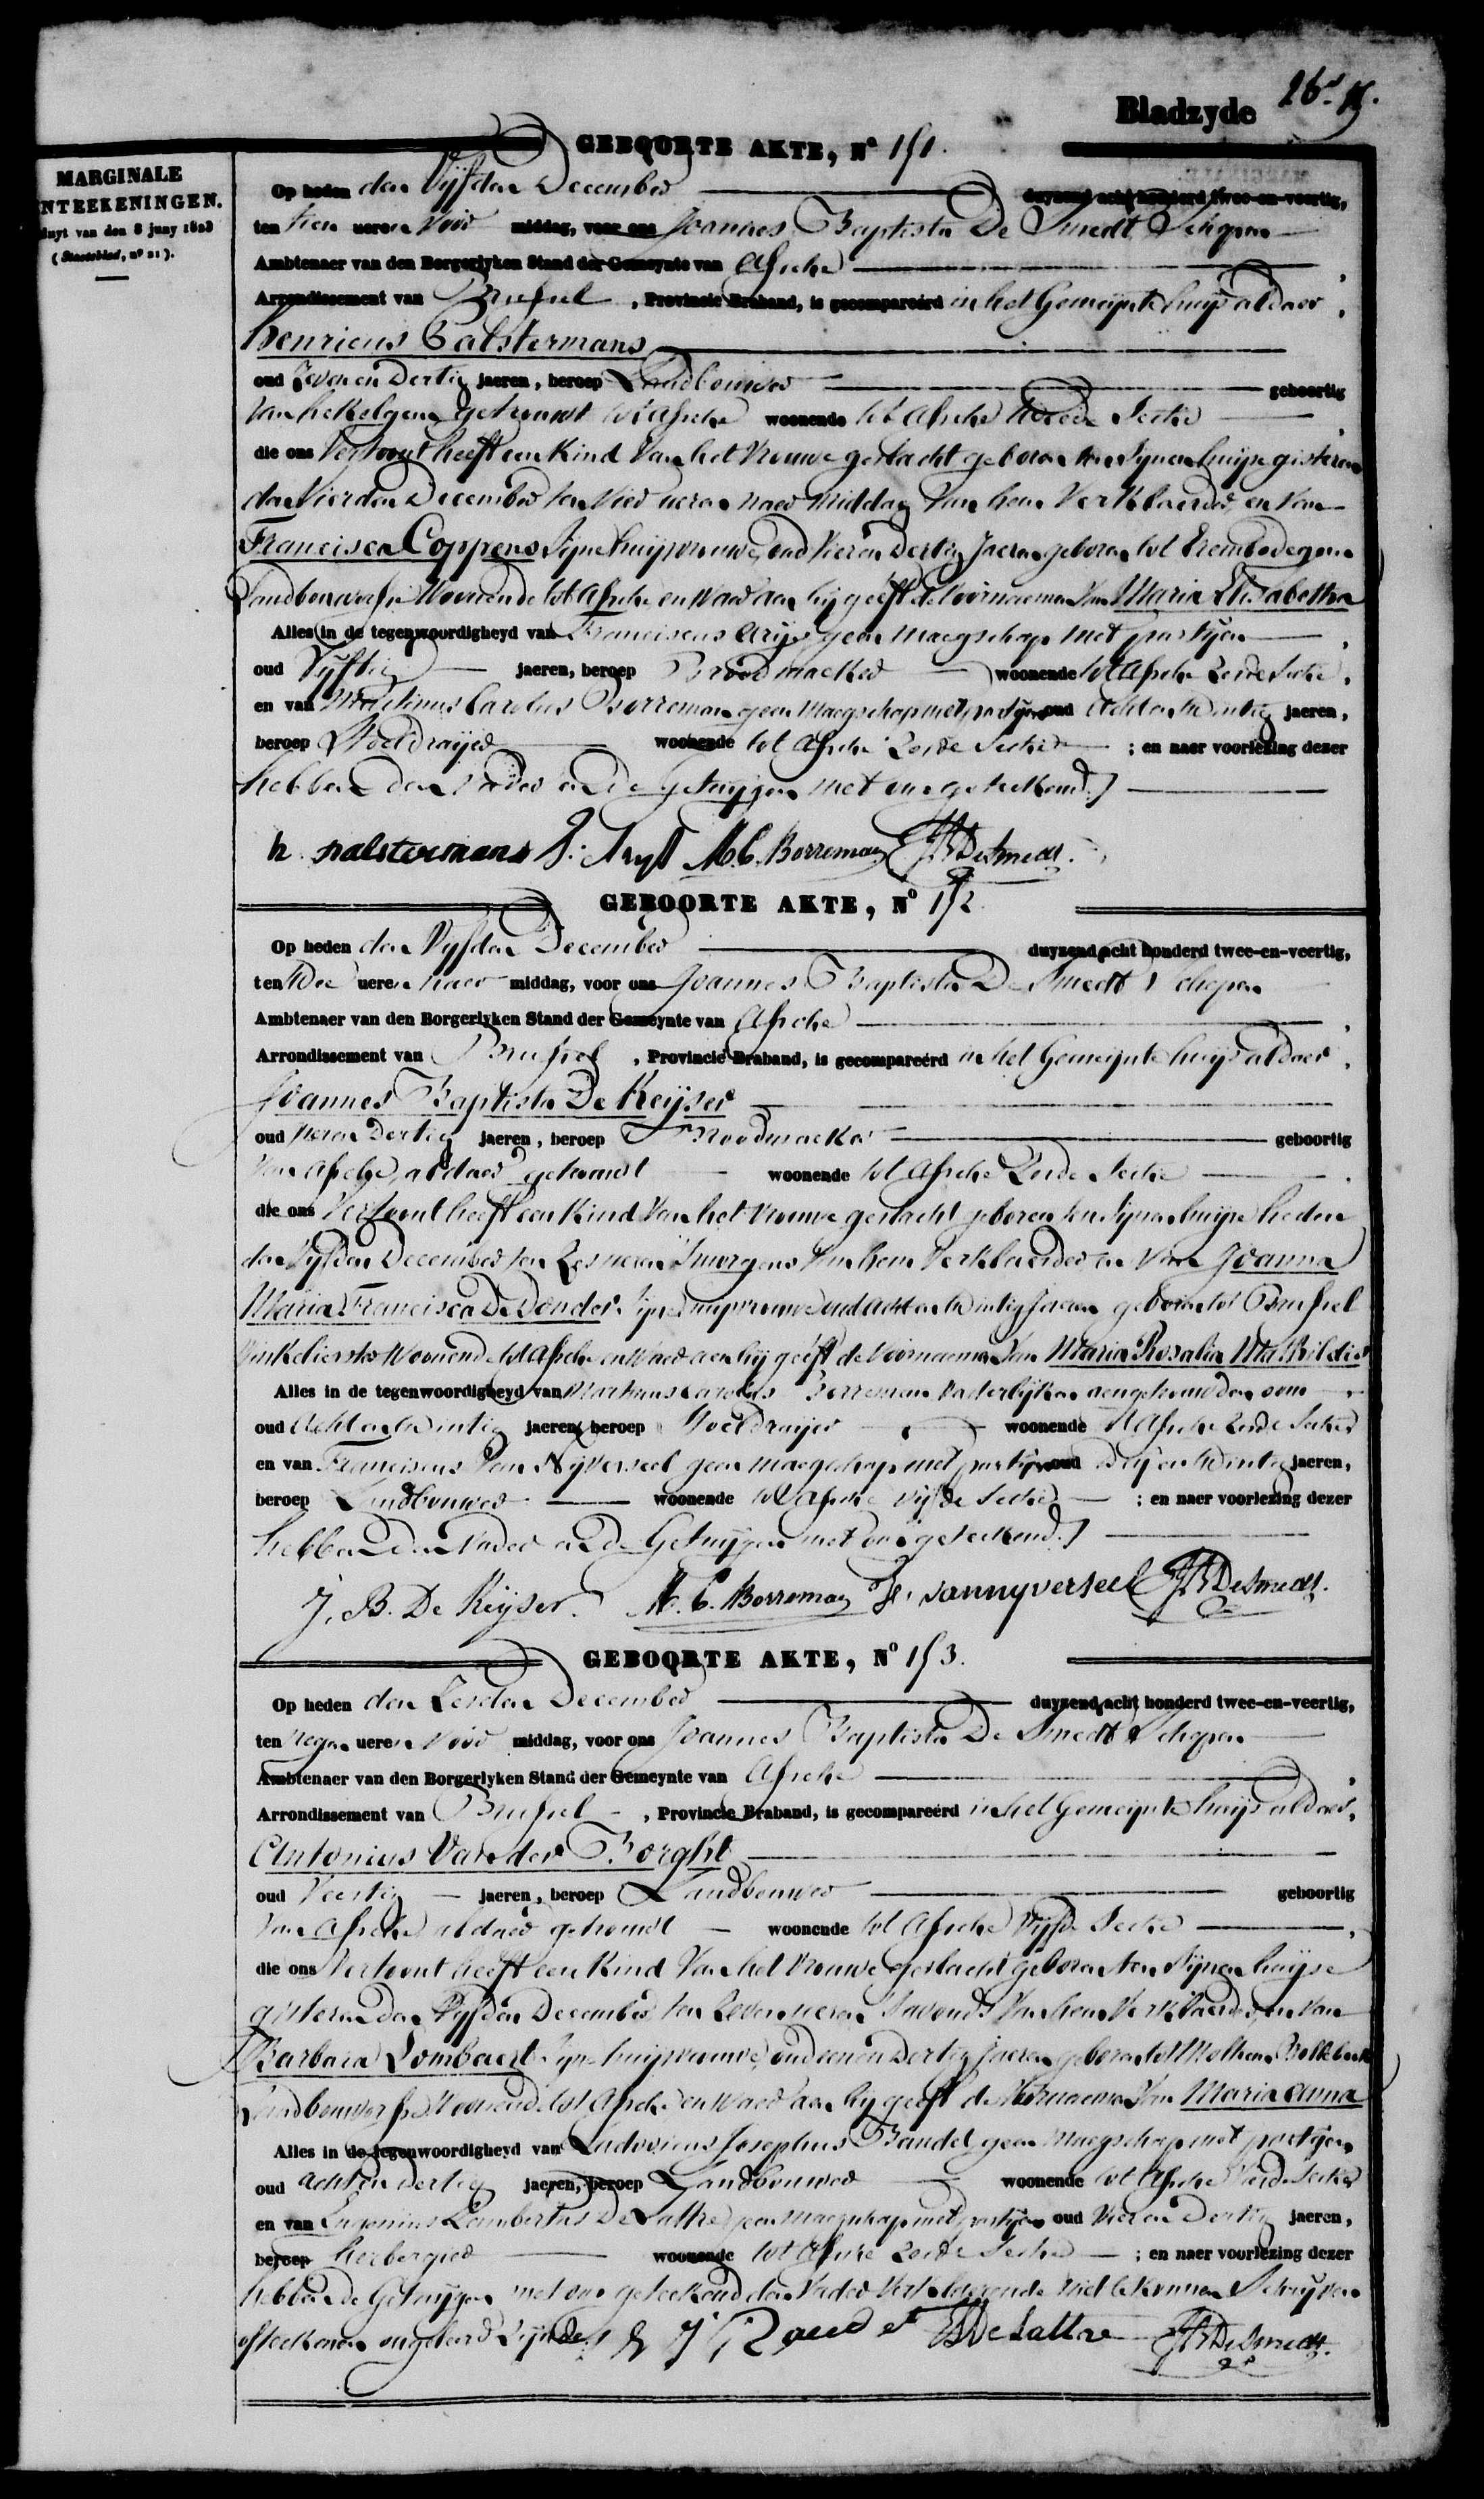 Bladzyde 26.
MARGINALE
NTREEKENINGEN.
luyt van den 8 juny 1823
(Staatsblad, nº 21).
GEBOORTE AKTE, Nº 151.
Op heden den Vyfden December duyzend acht honderd twee-en-veertig,
ten tien ueren Voor middag, voor ons Joannes Baptista De Smedt Schepen
Ambtenaer van den Borgerlyken Stand der Gemeynte van Assche
Arrondissement van Brussel, Provincie Braband, is gecompareérd in het Gemeynte huijs aldaer,
Henricus Palstermans
oud Zeven en Dertig jaeren, beroep Landbouwer geboortig
Van hekelgem getrouwt tot Assche woonende tot Assche Sectie
die ons Vertoont heeft een Kind Van het Vrouwe geslacht geboren ten Synen huijse gisteren
den Vierden December ten Vier ueren naer middag Van hem Verklaerder en Van
Francisca Coppens Syne huijsvrouwe, oud Vier en Dertig Jaeren geboren tot Erembodegem
Landbouwersse Woonende tot Assche en Waer aen hij geeft de Voornaemen Van Maria Elisabetha
Alles in de tegenwoordigheyd van Franciscus Arijs geen maegschap met partijen,
oud Vyftig jaeren, beroep Broodmaeker woonende tot Assche Eerste Sectie,
en van Martinus Carolus Borreman geen Maegschap met partijen oud Acht en twintig jaeren,
beroep Stoeldraijer woonende tot Assche Eerste Sectie; en naer voorlezing dezer
hebben den Vader en De Getuijgen met ons geteekend.
h. palstermans F. Arys M. C. Borreman JB DeSmedt.
GEBOORTE AKTE, Nº 152
Op heden den Vyfden December duyzend acht honderd twee-en-veertig,
ten twee ueren naer middag, voor ons Joannes Baptista De Smedt Schepen
Ambtenaer van den Borgerlyken Stand der Gemeynte van Assche,
Arrondissement van Brussel, Provincie Braband, is gecompareérd in het Gemeynte huijs aldaer,
Joannes Baptista De Keijser
oud Vier en Dertig jaeren, beroep Broodmaeker geboortig
Van Assche, aldaer getrouwt woonende tot Assche Eerste Sectie.
die ons Vertoont heeft een Kind Van het Vrouwe geslacht geboren ten Synen huijse heden
den Vyfden December ten Zes ueren Smorgens Van hem Verklaerder en Van Joanna
Maria Francisca De Donder Syne huijsvrouwe oud Acht en twintig Jaeren geboren tot Brussel
Winkelierster Woonende tot Assche en Waer aen hij geeft de Voornaemen Van Maria Rosalia Mathildis
Alles in de tegenwoordigheyd van Martinus Carolus Borreman Vaderlijken aengetrouwden oom
oud Acht en twintig jaeren, beroep Stoeldraijer woonende tot Assche Eerste Sectie
en van Franciscus Van Nijverseel geen maegschap met partijen oud dry en twintig jaeren,
beroep Landbouwer woonende tot Assche Vijfde Sectie; en naer voorlezing dezer
hebben Den Vader en De Getuijgen met ons geteekend.
J. B. De Keyser. M. C. Borreman F. vannyverseel JB DeSmedt.
GEBOORTE AKTE, Nº 153.
Op heden den Zesden December duyzend acht honderd twee-en-veertig,
ten negen ueren Voor middag, voor ons Joannes Baptista De Smedt Schepen
Ambtenaer van den Borgerlyken Stand der Gemeynte van Assche,
Arrondissement van Brussel, Provincie Braband, is gecompareérd in het Gemeynte huijs aldaer,
Antonius Van der Borght
oud Veertig jaeren, beroep Landbouwer geboortig
Van Assche aldaer getrouwt woonende tot Assche Vijfde Sectie,
die ons Vertoont heeft een Kind Van het Vrouwe geslacht geboren ten Synen huijse
gisteren den Vyfden December, ten Zeven ueren Savonds Van hem Verklaerder, en Van
Barbara Lombaert Syne huijsvrouwe, oud een en Dertig Jaeren geboren tot
Landbouwersse Woonende tot Assche en Waer aen hy geeft de Voornaemen Van Maria Anna
Alles in de tegenwoordigheyd van Ludovicus Josephus Baudet geen Maegschap met partijen,
oud acht en Dertig jaeren, beroep Landbouwer woonende tot Assche Sectie
en van Eugenius Lambertus De Lattre geen maegschap met partijen oud Vier en Dertig jaeren,
beroep herbergier woonende tot Assche Eerste Sectie; en naer voorlezing dezer
hebben De Getuijgen met ons geteekend den Vader Verklaerende niet te Kunnen Schrijven
of teekenen ongeleerd Zijnde. L J Baudet De Lattre JB DeSmedt.